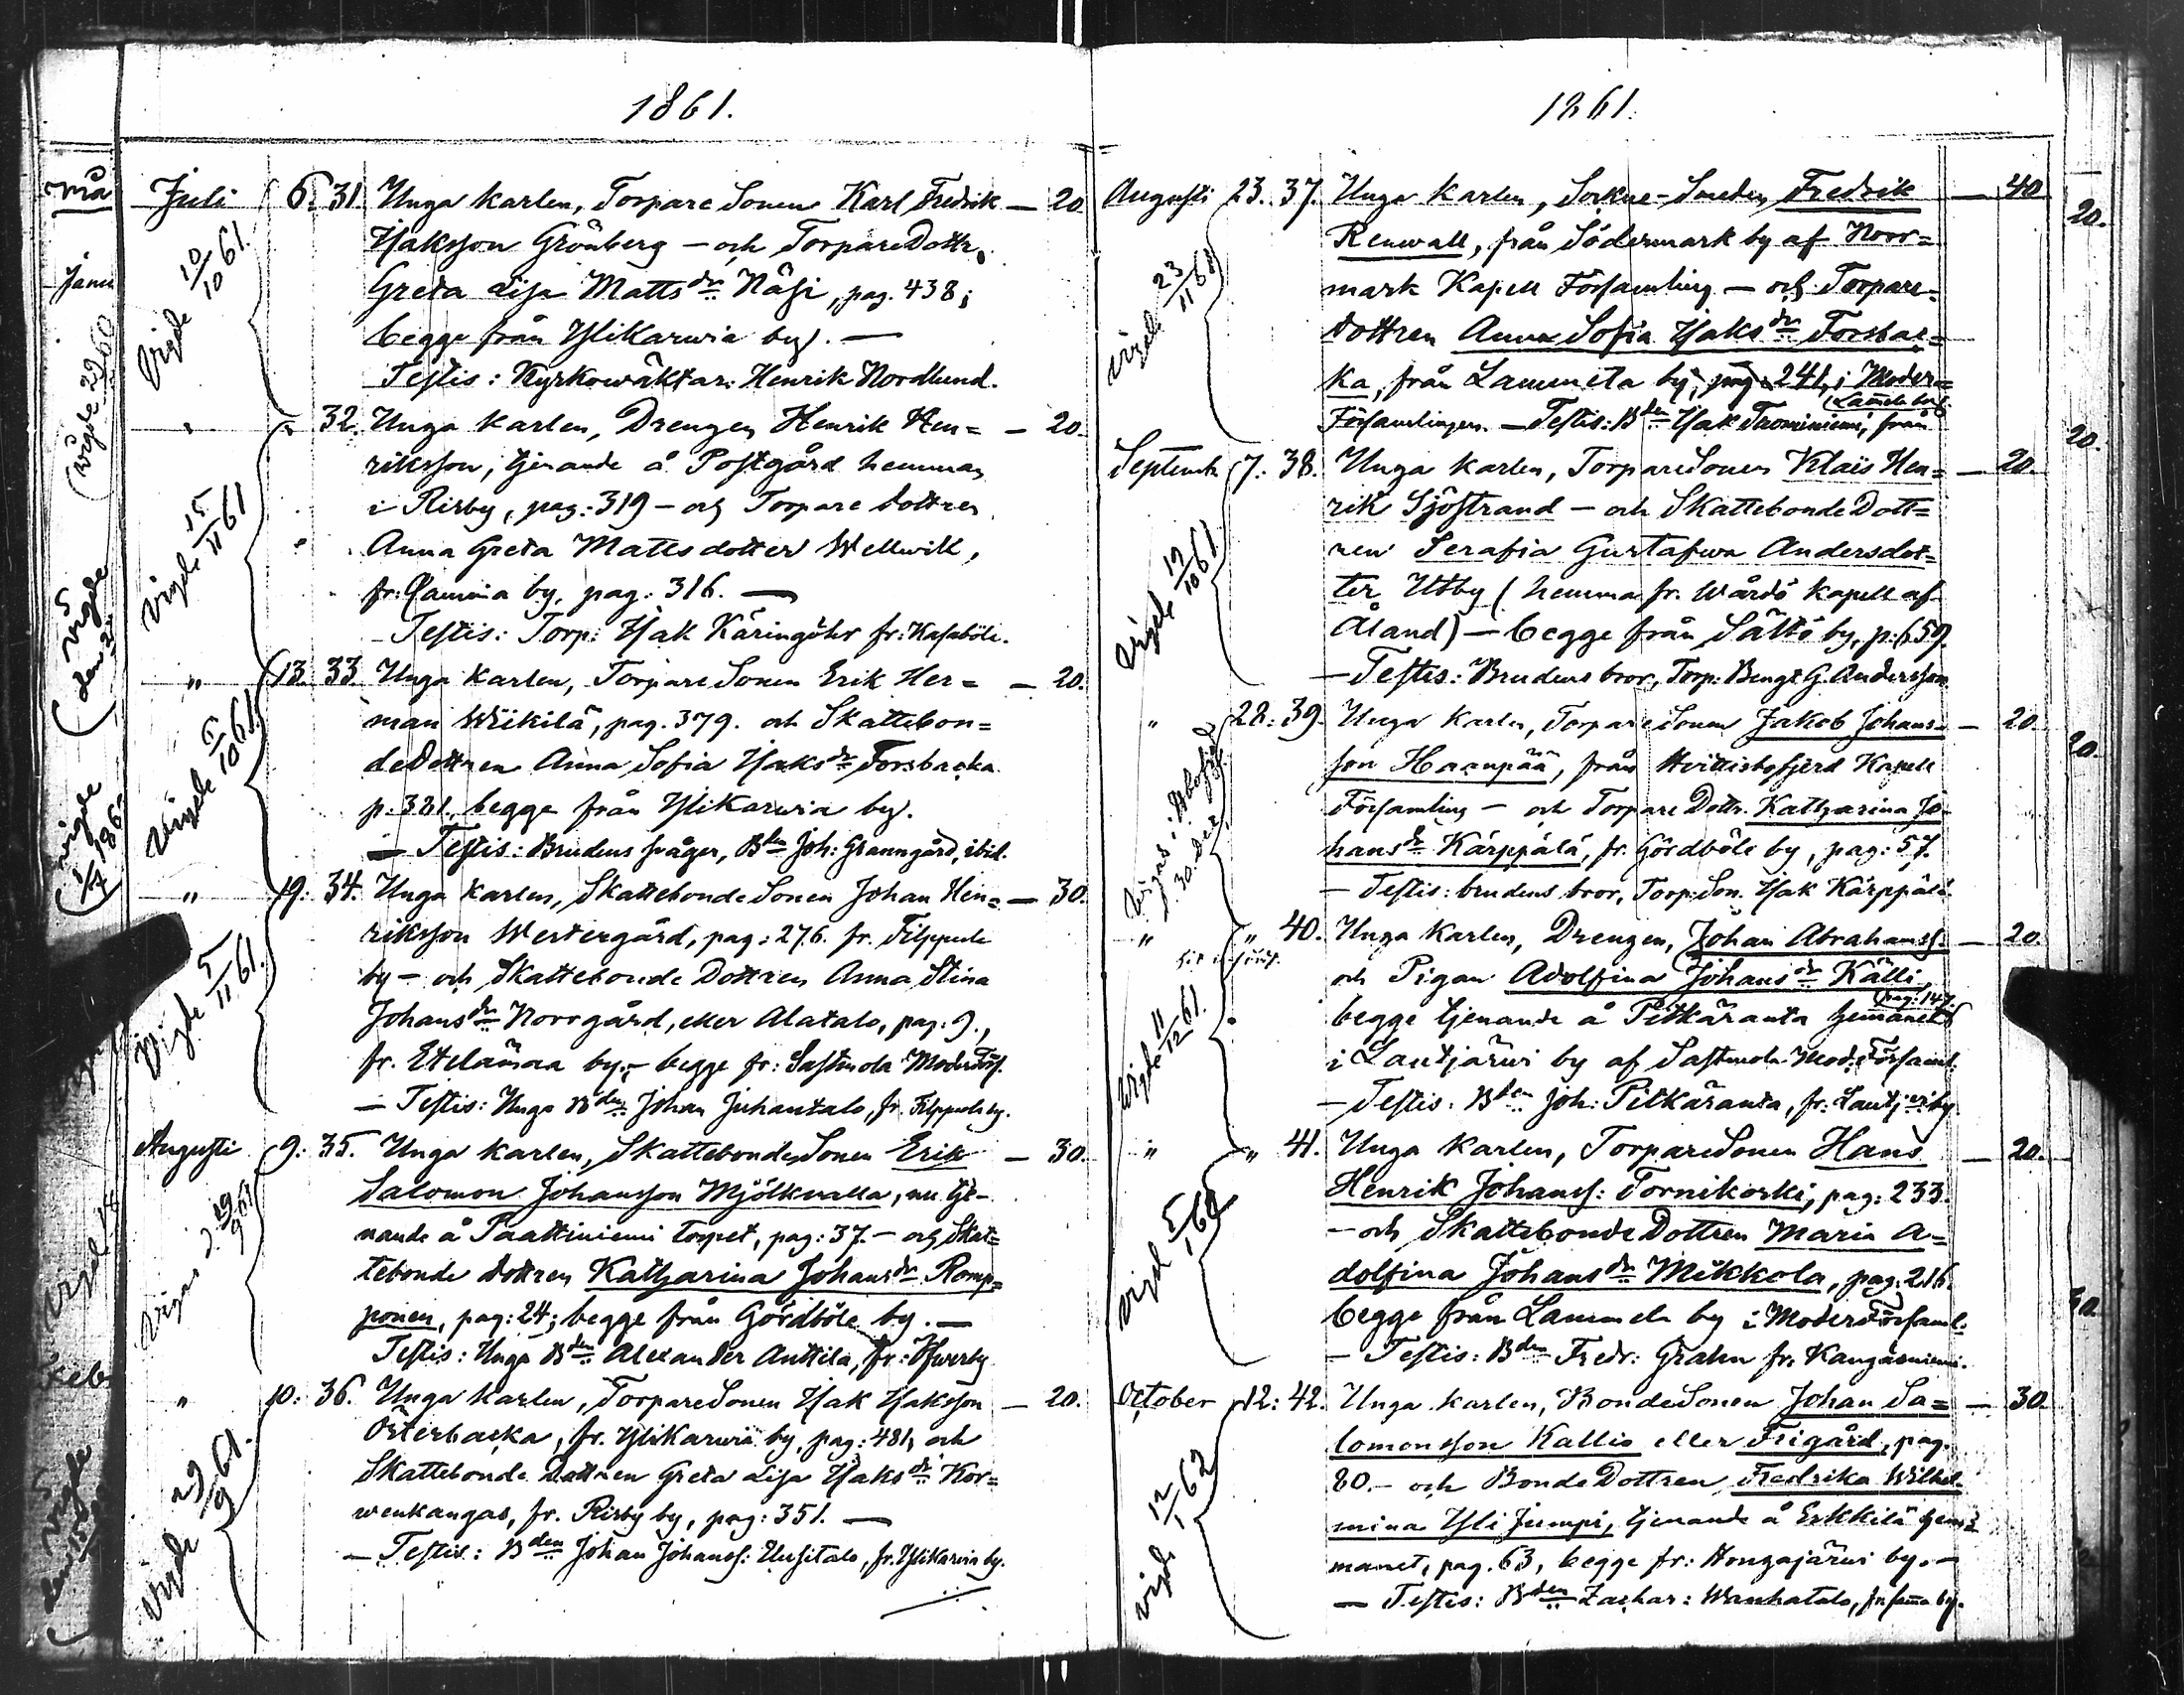 1861.
Juli 6. 31. Unga karlen, Torpare Sonen Karl Fredrik — 20.
Isaksson Grönberg — och Torpare Dottr.
Greta Lisa Mattsdr Näsi, pag. 438;
begge från Ylikarwia by. —
Testis: Kyrkowäktar. Henrik Nordlund.
Vigde 10/10 61.
" 32. Unga karlen, Drengen Henrik Hen= — 20.
riksson, tjenande å Postgård hemman
i Risby, pag: 319 — och Torpare dottren
Anna Greta Mattsdotter Wellwik,
fr: Lamma by, pag: 316. —
— Testis: Torp: Isak Käringöhr fr: Kasaböle.
Vigde 15/11 61
" 13. 33. Unga karlen, Torpare Sonen Erik Her= — 20.
man Wiikilä, pag. 379. och Skattebon=
deDottren Anna Sofia Isaksdr Forsbacka
p: 381., begge från Ylikarwia by.
— Testis: Brudens swåger, Bden Joh: Granngård, ibid.
Vigde 10 61
" 19: 34. Unga karlen, Skattebonde Sonen Johan Hen= — 30.
riksson Westergård, pag: 276. fr. Filppula
by — och Skattebonde Dottren Anna Stina
Johansdr Norrgård, eller Alatalo, pag: 9.,
fr. Etelämaa by; — begge fr: Sastmola Moderförs.
— Testis: Unga Bden Johan Juhantalo, fr. Filppula by.
Vigde 5/11 61.
Augusti 9: 35. Unga karlen, Skattebonde Sonen Erik — 30.
Salomon Johansson Mjölknalla, nu tje-
nande å Paattiniemi torpet, pag: 37. — och Skat=
tebonde dottren Katharina Johansdr Romp=
ponen, pag: 24; begge från Gördböle by. —
Testis: Unga Bden Alexander Anttila, fr: Ofwerby
Vigas d. 29/9 61
" 10: 36. Unga karlen, Torpare Sonen Isak Isaksson — 20.
Österbacka, fr. Ylikarwia by, pag: 481, och
Skattebonde Dottren Greta Lisa Isaksdr Kor=
wenkangas, fr. Risby by, pag: 351. —
— Testis: Bden Johan Johanss: Uusitalo, fr. Ylikarwia by.
Vigde 29/9 61.
1861.
Augusti 23. 37. Unga karlen, Sockne-Smeden Fredrik — 40
Renwall, från Södermark by af Norr=
mark Kapell Församling — och Torpare=
dottren Anna Sofia Isaksdr Forsbac=
ka, från Lammela by, pag. 241, i Moder=
Församlingen. — Testis: Bden Isak Tuominiemi, från
Lammela by.
Vigde 23/11 61
Septemb. 7. 38. Unga karlen, Torpare Sonen Klais Hen= — 20.
rik Sjöstrand — och Skattebonde Dott=
ren Serafia Gustafwa Andersdot=
ter Utby (hemma fr. Wårdö kapell af
Åland) — begge från Sältö by, p: 659.
— Testis: Brudens bror, Torp: Bengt G. Andersson
Vigde 19/10 61
" 28: 39. Unga karlen, Torpare Sonen Jakob Johans= — 20.
son Haanpää, från Hvittisbofjerd Kapell
Församling — och Torpare Dottr. Katharina Jo=
hansdr Kärppälä, fr. Gördböle by, pag: 57.
— Testis: brudens bror, Torp: Son. Isak Kärppälä
" " 40. Unga karlen, Drengen, Johan Abrahamss: — 20.
och Pigan Adolfina Johansdr Källi,
pag: 147.
begge tjenande å Pitkäranta hemanet
i Lautjärwi by af Sastmola Mod: Församl.
— Testis: Bden Joh: Pitkäranta, fr: Lautjerwi by
Vigde 11/12 61.
" " 41. Unga karlen, Torpare Sonen Hans — 20.
Henrik Johanss: Tornikoski, pag: 233.
— och Skattebonde Dottren Maria A=
dolfina Johansdr Mikkola, pag: 216.
begge från Lammela by i Moder Församl.
— Testis: Bden Fredr: Grahn fr. Kangasniemi.
Vigd 5/1 62
October 12: 42. Unga karlen, Bonde Sonen Johan Sa= — 30.
lomonsson Kallio eller Frigård, pag.
80. — och Bonde Dottren Fredrika Wilhel=
mina Yli Jumpi, tjenande å Erkkilä hem=
manet, pag. 63, begge fr: Hongajärwi by. —
— Testis: Bden Zachar: Wanhatalo, fr samma by.
Vigde 12/1 62